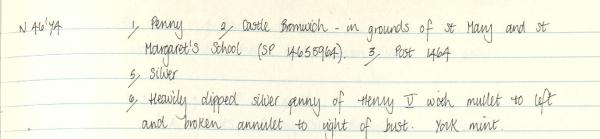 N 46'YA 1, Penny 2, Castle Bromwich - in grounds of St Mary and St
Margaret's School (SP 14655964). 3, Post 1464
5, Silver
6, Heavily clipped silver penny of Henry V with mullet to left
and broken annulet to right of bust. York mint.